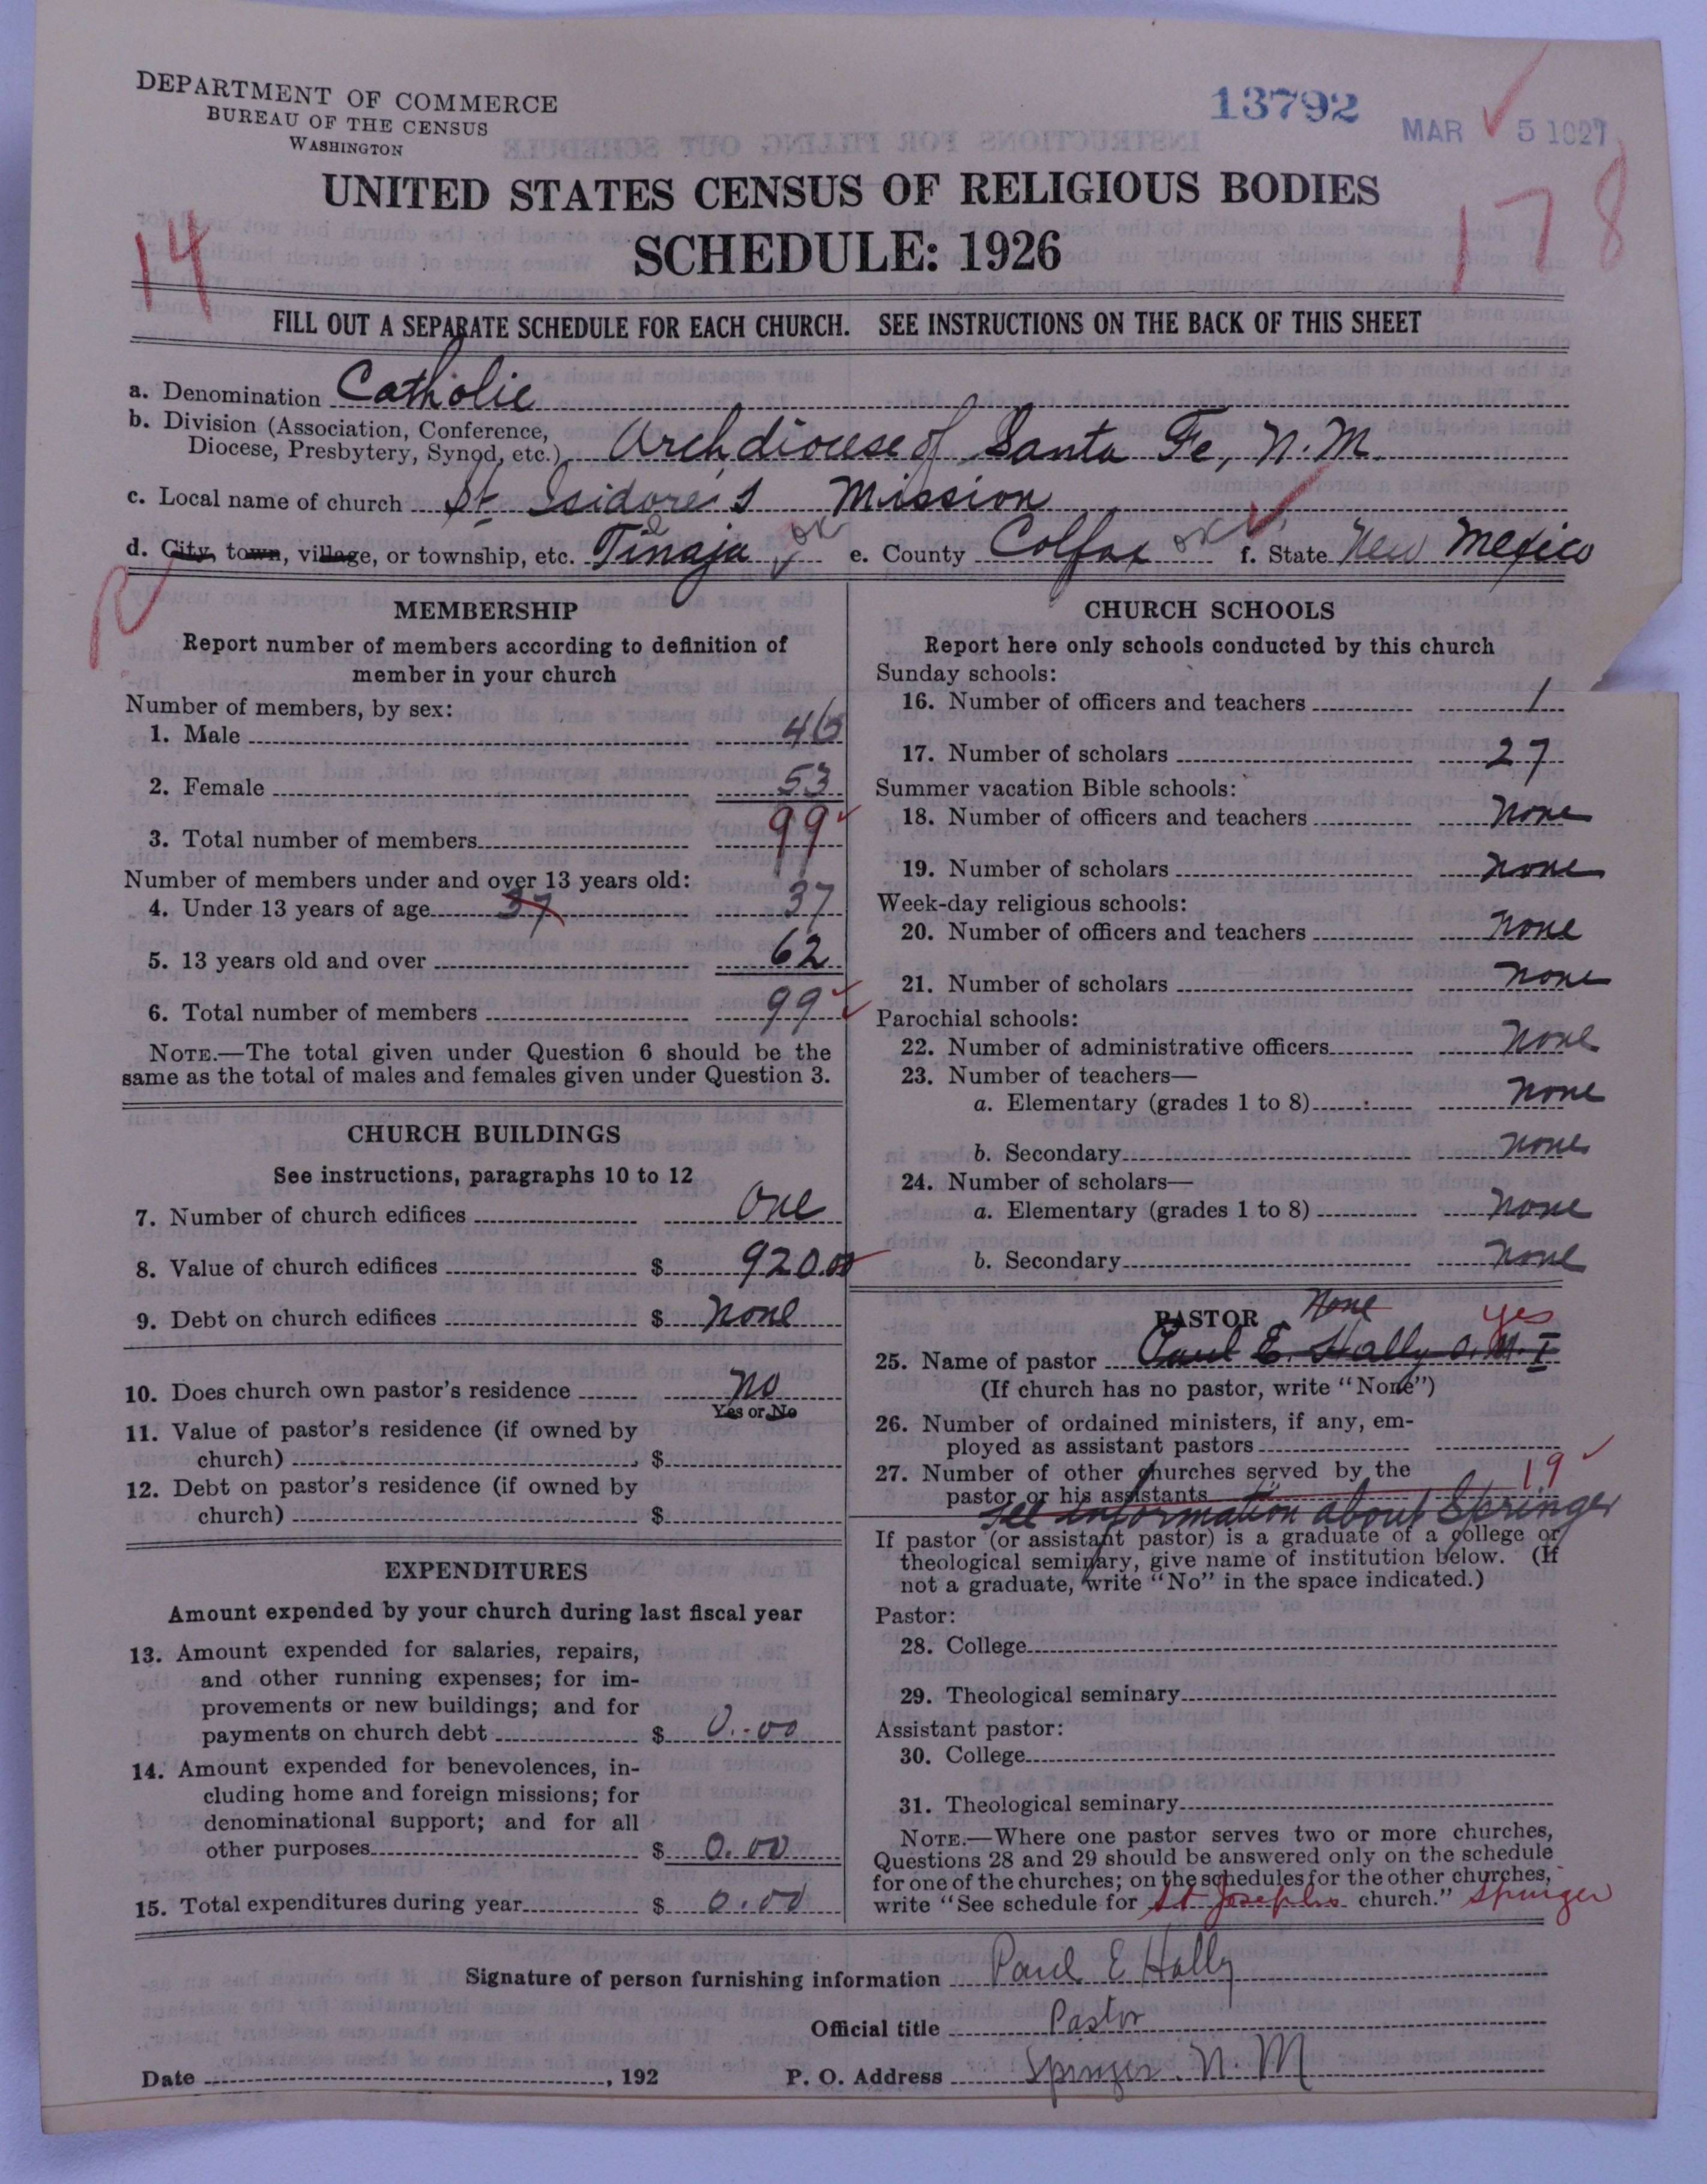 DEPARTMENT OF COMMERCE
BUREAU OF THE CENSUS
WASHINGTON
13792
MAR 5 1927
UNITED STATES CENSUS OF RELIGIOUS BODIES
SCHEDULE: 1926
14
178
FILL OUT A SEPARATE SCHEDULE FOR EACH CHURCH. SEE INSTRUCTIONS ON THE BACK OF THIS SHEET
a. Denomination Catholic
b. Division (Association, Conference, Diocese, Presbytery, Synod, etc.) Archdiocese of Santa Fe, N.M.
c. Local name of church St Isidore's Mission
d. City, town, village, or township, etc. Tinaja ok e. County Colfax ok f. State New Mexico
R
MEMBERSHIP
Report number of members according to definition of
member in your church
Number of members, by sex:
1. Male 46
2. Female 53
3. Total number of members 99
Number of members under and over 13 years old:
4. Under 13 years of age 37 37
5. 13 years old and over 62
6. Total number of members 99
NOTE.—The total given under Question 6 should be the
same as the total of males and females given under Question 3.
CHURCH BUILDINGS
See instructions, paragraphs 10 to 12
7. Number of church edifices One
8. Value of church edifices $ 920.00
9. Debt on church edifices $ none
10. Does church own pastor's residence no
Yes or No
11. Value of pastor's residence (if owned by
church) $
12. Debt on pastor's residence (if owned by
church) $
EXPENDITURES
Amount expended by your church during last fiscal year
13. Amount expended for salaries, repairs,
and other running expenses; for im-
provements or new buildings; and for
payments on church debt $ 0.00
14. Amount expended for benevolences, in-
cluding home and foreign missions; for
denominational support; and for all
other purposes $ 0.00
15. Total expenditures during year $ 0.00
CHURCH SCHOOLS
Report here only schools conducted by this church
Sunday schools:
16. Number of officers and teachers 1
17. Number of scholars 27
Summer vacation Bible schools:
18. Number of officers and teachers none
19. Number of scholars none
Week-day religious schools:
20. Number of officers and teachers none
21. Number of scholars none
Parochial schools:
22. Number of administrative officers none
23. Number of teachers—
a. Elementary (grades 1 to 8) none
b. Secondary none
24. Number of scholars—
a. Elementary (grades 1 to 8) none
b. Secondary none
PASTOR None yes
25. Name of pastor Paul E. Hally O.M.I
(If church has no pastor, write "None")
26. Number of ordained ministers, if any, em-
ployed as assistant pastors
27. Number of other churches served by the
pastor or his assistants 19
See information about Springer
If pastor (or assistant pastor) is a graduate of a college or
theological seminary, give name of institution below. (If
not a graduate, write "No" in the space indicated.)
Pastor:
28. College
29. Theological seminary
Assistant pastor:
30. College
31. Theological seminary
NOTE.—Where one pastor serves two or more churches,
Questions 28 and 29 should be answered only on the schedule
for one of the churches; on the schedules for the other churches,
write "See schedule for St Josephs church." Springer
Signature of person furnishing information Paul E Hally
Official title Pastor
Date , 192 P. O. Address Springer N. M